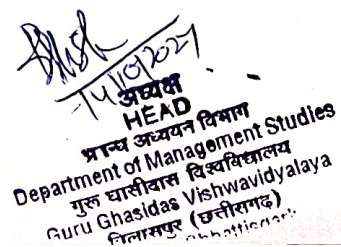 14/10/2021
अध्यक्ष
HEAD
प्रबन्ध अध्ययन विभाग
Department of Management Studies
गुरू घासीदास विश्वविद्यालय
Guru Ghasidas Vishwavidyalaya
बिलासपुर (छत्तीसगढ़)